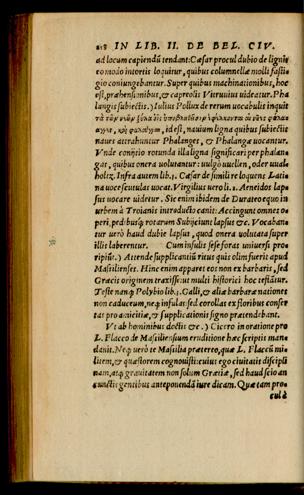 218 IN LIB. II. DE BEL. CIV.
ad locum capiendū tendant: Cæsar procul dubio de lignis
eo modo intortis loquitur, quibus columnellæ molli fasti-
gio coniungebantur. Super quibus machinationibus, hoc
est, prǣhensionibus, & capreolis Vitruuius uideatur. Pha
langis subiectis.) Iulius Pollux de rerum uocabulis inquit
id est, nauium ligna quibus subiectis
naues attrahuntur Phalanges, & Phalangæ uocantur.
Vnde conspicio rotunda illa ligna significari per phalan-
gas, quibus onera uoluuntur: uulgò uuellen, oder uual-
holtz. Infra autem lib. 3. Cæsar de simili re loquens Lati-
na uoce scutulas uocat. Virgilius uero li. 2. Aeneidos lap-
sus uocare uidetur. Sic enim ibidem de Durateo equo in
urbem à Troianis introducto canit: Accingunt omnes o-
peri, pedibusq; rotarum Subijciunt lapsus &c. Vocaban-
tur uerò haud dubie lapsus, quod onera uoluta super
illis laberentur. Cum insulis sese foras uniuersi pro-
ripiūt.) Attende supplicantiū ritus quis olim fuerit apud
Massilienses. Hinc enim apparet eos non ex barbaris, sed
Græcis originem traxisse: ut multi historici hoc testātur.
Teste nanq; Polybio lib. 3. Galli, & aliæ barbaræ nationes
non caduceum, neq; infulas: sed corollas ex floribus conser-
tas pro amicitiæ, & supplicationis signo prætendebant.
Vt ab hominibus doctis &c.) Cicero in oratione pro
L. Flacco de Massiliensium eruditione hæc scriptis man-
dauit. Neq; uerò te Massilia prætereo, quæ L. Flaccū mi-
litem, & quæstorem cognouisti: cuius ego ciuitatis discipli
nam, atq; grauitatem non solum Græciæ, sed haud scio an
cunctis gentibus anteponendā iure dicam. Quæ tam pro-
cul à